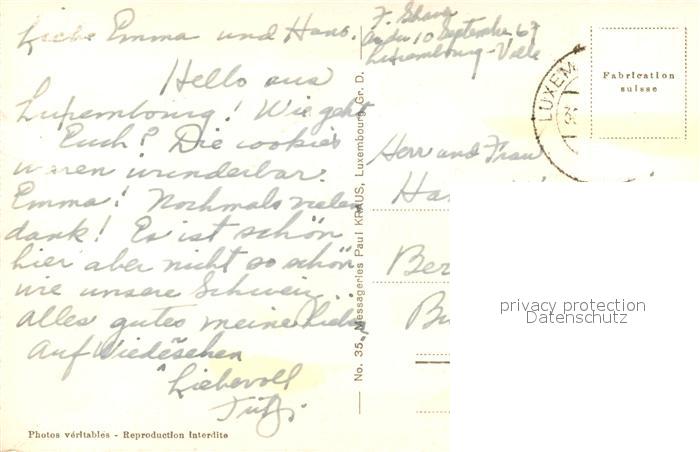 Liebe Emma und Hans.
Hello aus
Luxembourg! Wie geht
Euch? Die cookies
waren wunderbar.
Emma! Nochmals vielen
dank! Es ist schön
hier aber nicht so schön
wie unsere Schweiz...
alles gutes meine Liebe
Auf Wiedersehen
Liebevoll
Photos véritables - Reproduction Interdite
No. 35 Messageries Paul KRAUS, Luxembourg, Gr. D.
F.
10 Septembre 67
Luxembourg-Ville
LUXEM
Fabrication
suisse
Herr und Frau
Ha
Ber
privacy protection
Datenschutz